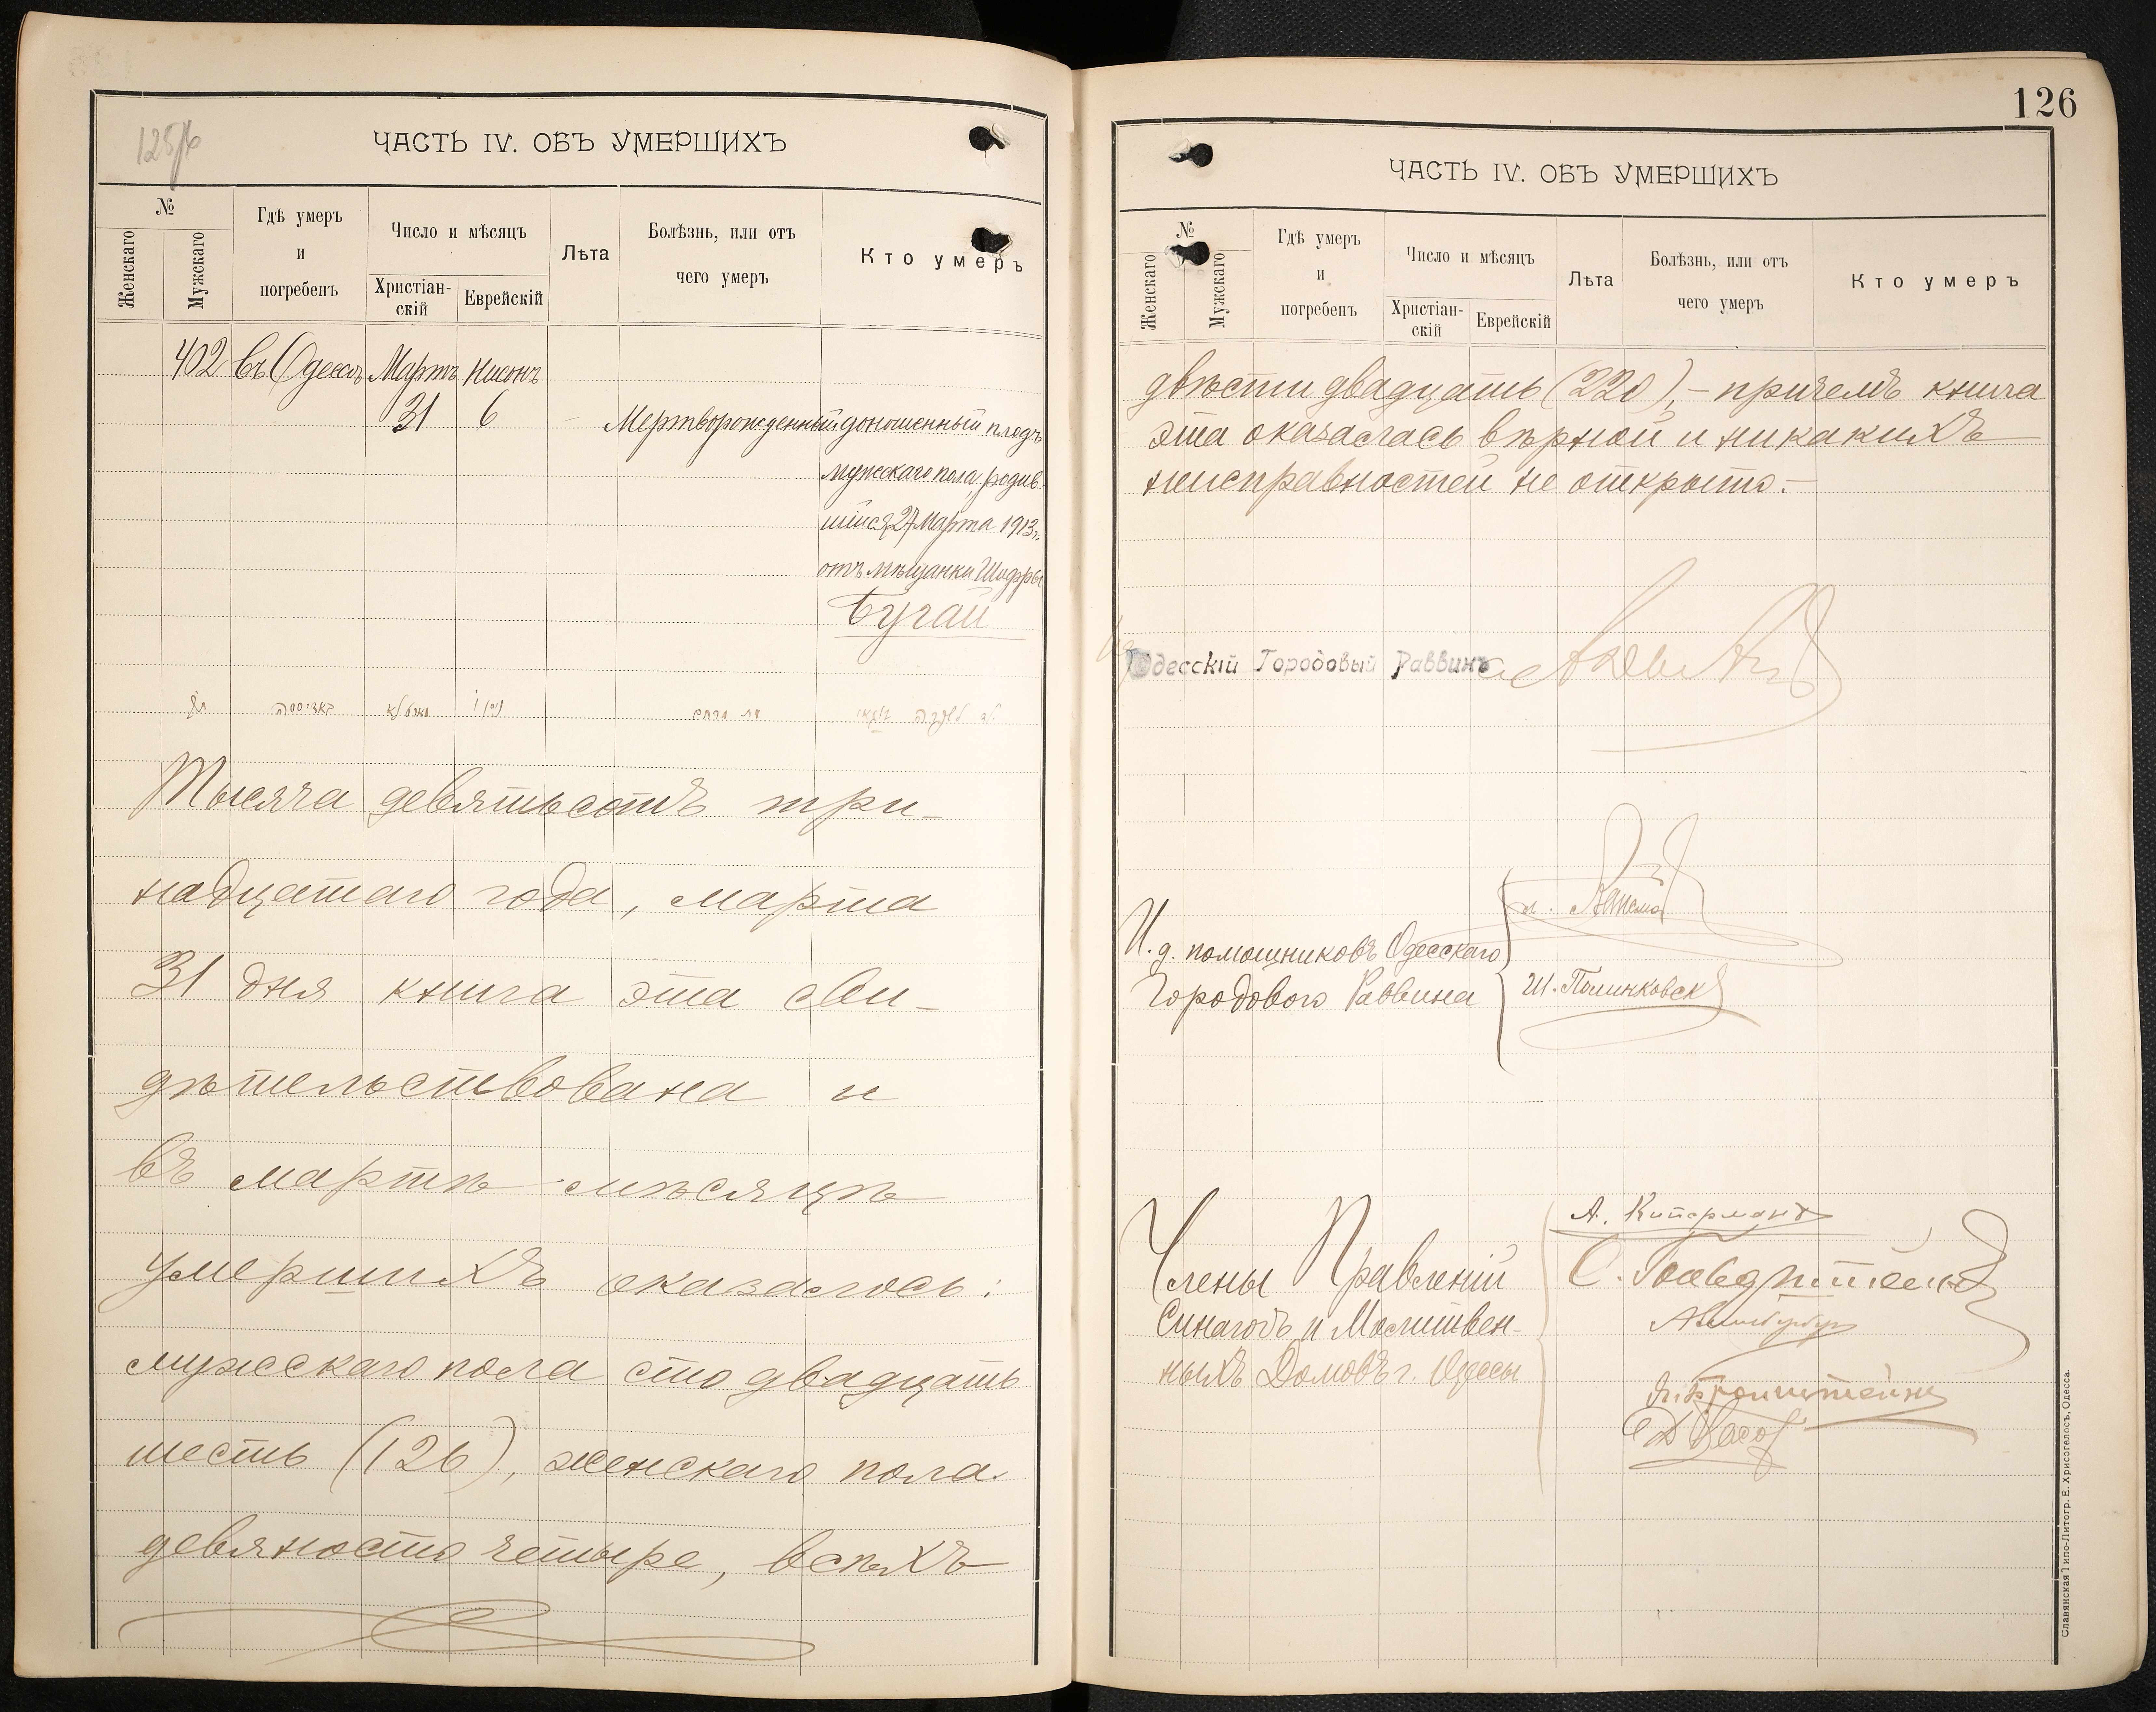 125/б
ЧАСТЬ IV. ОБЪ УМЕРШИХЪ
№
Женскаго
Мужскаго
Гдѣ умеръ
и
погребенъ
Число и мѣсяцъ
Христіан-
скій
Еврейскій
Лѣта
Болѣзнь, или отъ
чего умеръ
Кто умеръ
402 въ Одессѣ Мартъ Нисонъ
31 6 – Мертворожденный доношенный плодъ
мужескаго пола, родив-
шійся 27 Марта 1913 г.
отъ мѣщанки Шифры
Бугай
Тысяча девятьсотъ три-
надцатаго года, марта
31 дня книга эта сви-
дѣтельствована и
въ мартѣ мѣсяцѣ
умершихъ оказалось:
мужескаго пола сто двадцать
шесть (126), женскаго пола
девяносто четыре, всѣхъ
126
ЧАСТЬ IV. ОБЪ УМЕРШИХЪ
№
Женскаго
Мужскаго
Гдѣ умеръ
и
погребенъ
Число и мѣсяцъ
Христіан-
скій
Еврейскій
Лѣта
Болѣзнь, или отъ
чего умеръ
Кто умеръ
двѣсти двадцать (220),– причемъ книга
эта оказалась вѣрной и никакихъ
неисправностей не открыто.–
Одесскій Городовый Раввинъ
И. д. помощниковъ Одесскаго
Городового Раввина
Члены Правленій
Синагогъ и Молитвен-
ныхъ Домовъ г. Одессы
А. Киперманъ
Славянская Типо-Литогр. Е. Хрисогелосъ, Одесса.